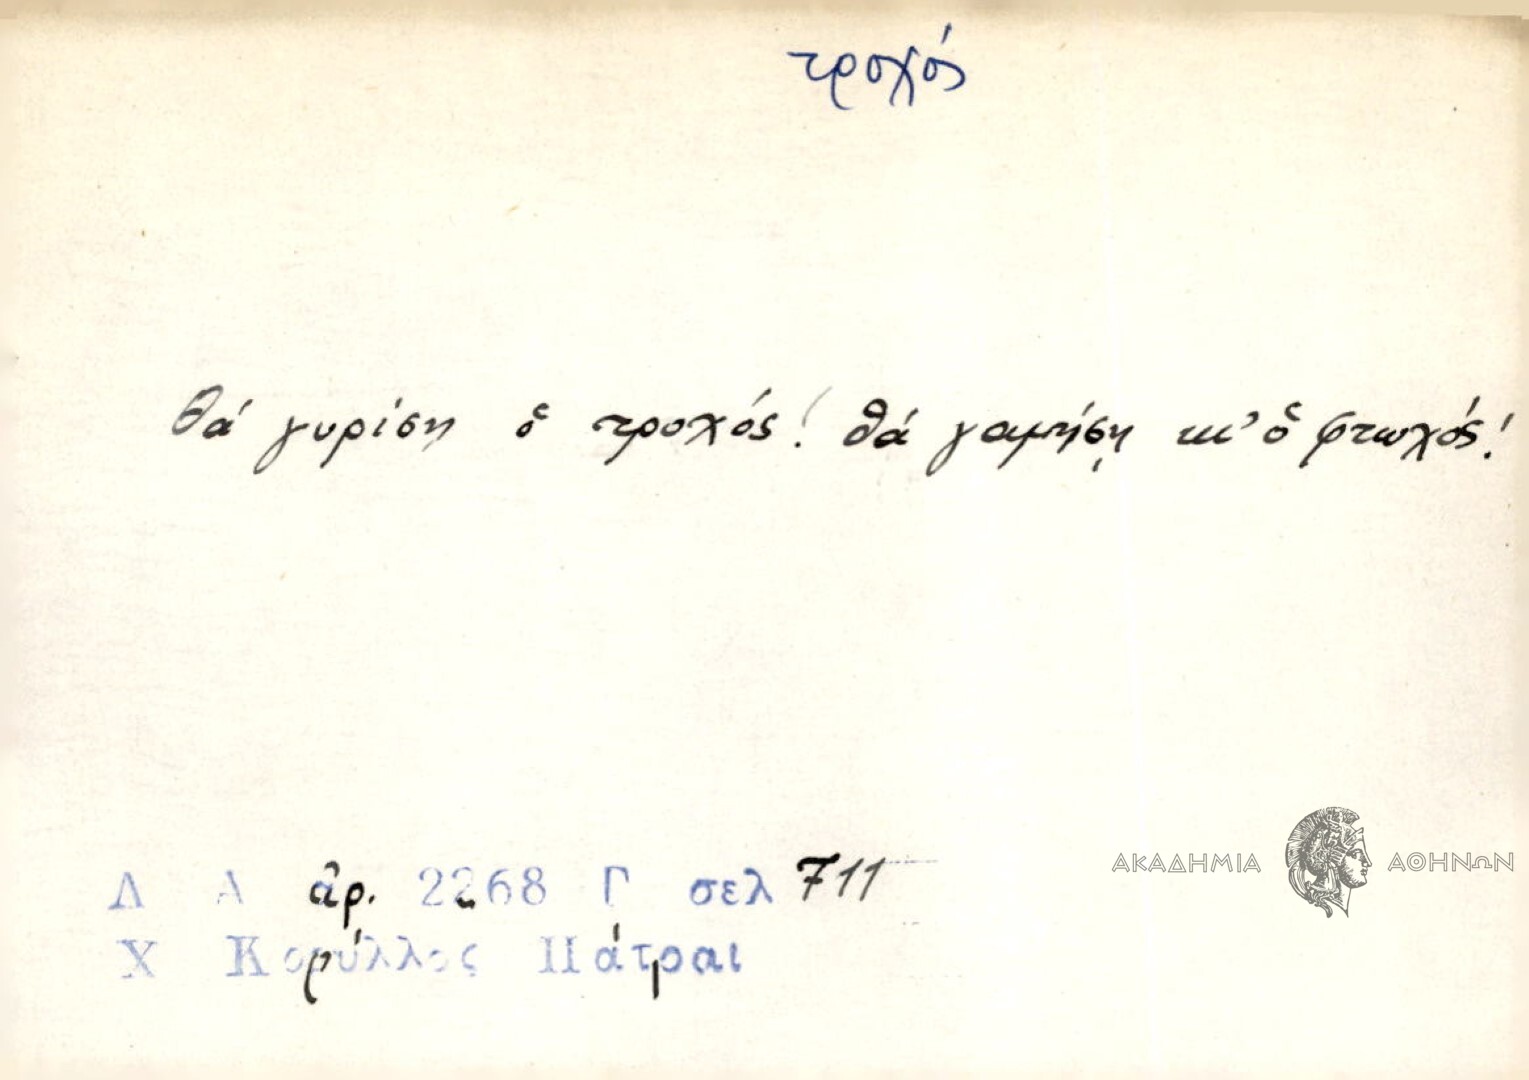 τροχός
θά γυρίση ὁ τροχός! θά γαμήσῃ κι' ὁ φτωχός!
Λ Α ἀρ. 2268 Γ σελ 711
Χ Κορύλλος Πάτραι
ΑΚΑΔΗΜΙΑ ΑΘΗΝΩΝ